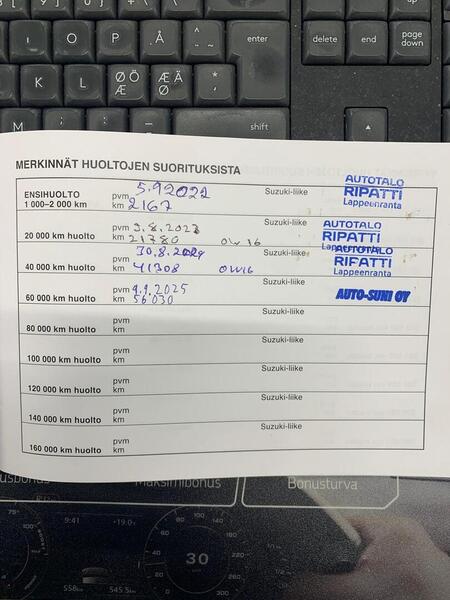 I O P Å enter delete end page down
K L Ö Ø Æ Ä Æ Ø * '
M ; , : . _ - shift
MERKINNÄT HUOLTOJEN SUORITUKSISTA
ENSIHUOLTO 1 000–2 000 km pvm 5.9.2022 km 2167 Suzuki-liike AUTOTALO RIPATTI Lappeenranta
20 000 km huolto pvm 9.8.2023 km 21780 0W16 Suzuki-liike AUTOTALO RIPATTI Lappeenranta
40 000 km huolto pvm 30.8.2024 km 41308 0W16 Suzuki-liike AUTOTALO RIPATTI Lappeenranta
60 000 km huolto pvm 9.9.2025 km 56030 Suzuki-liike AUTO-SUNI OY
80 000 km huolto pvm km Suzuki-liike
100 000 km huolto pvm km Suzuki-liike
120 000 km huolto pvm km Suzuki-liike
140 000 km huolto pvm km Suzuki-liike
160 000 km huolto pvm km Suzuki-liike
Maksimibonus Bonusturva
9:41 +19.0
30